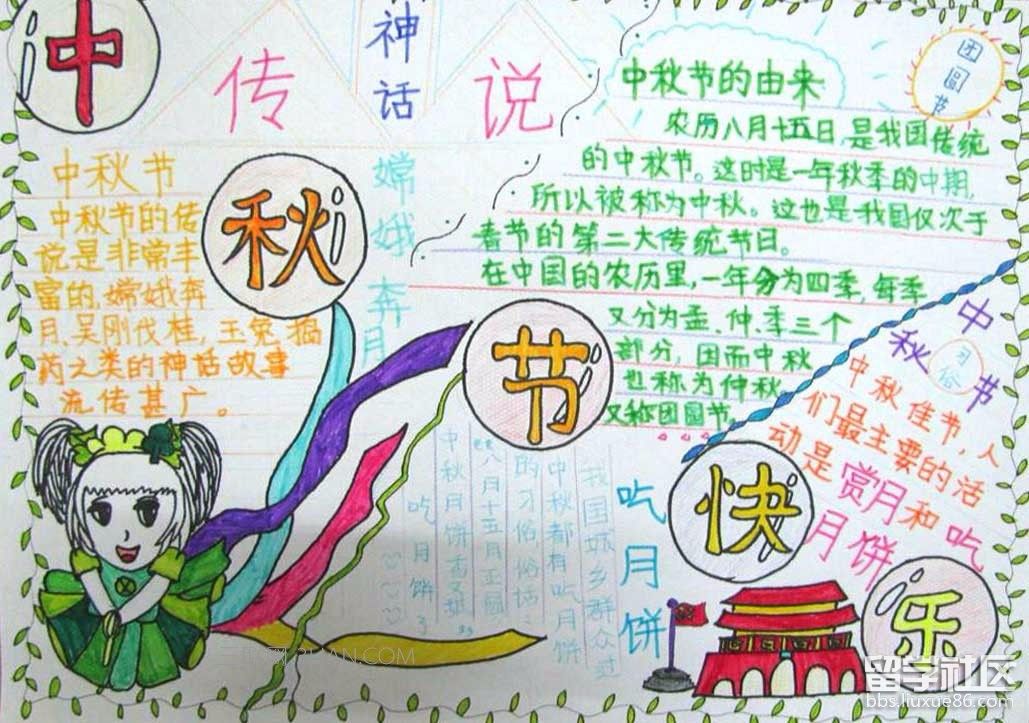 中
秋
节
快
乐
神话
传说
嫦娥奔月
中秋节
中秋节的传
说是非常丰
富的,嫦娥奔
月,吴刚伐桂,玉兔捣
药之类的神话故事
流传甚广。
中秋节的由来
农历八月十五日,是我国传统
的中秋节。这时是一年秋季的中期,
所以被称为中秋。这也是我国仅次于
春节的第二大传统节日。
在中国的农历里,一年分为四季,每季
又分为孟、仲、季三个
部分,因而中秋
也称为仲秋
又称团园节。
团圆节
中秋节
习俗
中秋佳节,人
们最主要的活
动是赏月和吃
月饼
吃月饼
我国城乡群众过
中秋都有吃月饼
的习俗俗话:
八月十五月正圆
中秋月饼香又甜
吃月饼
留学社区
bbs.liuxue86.com